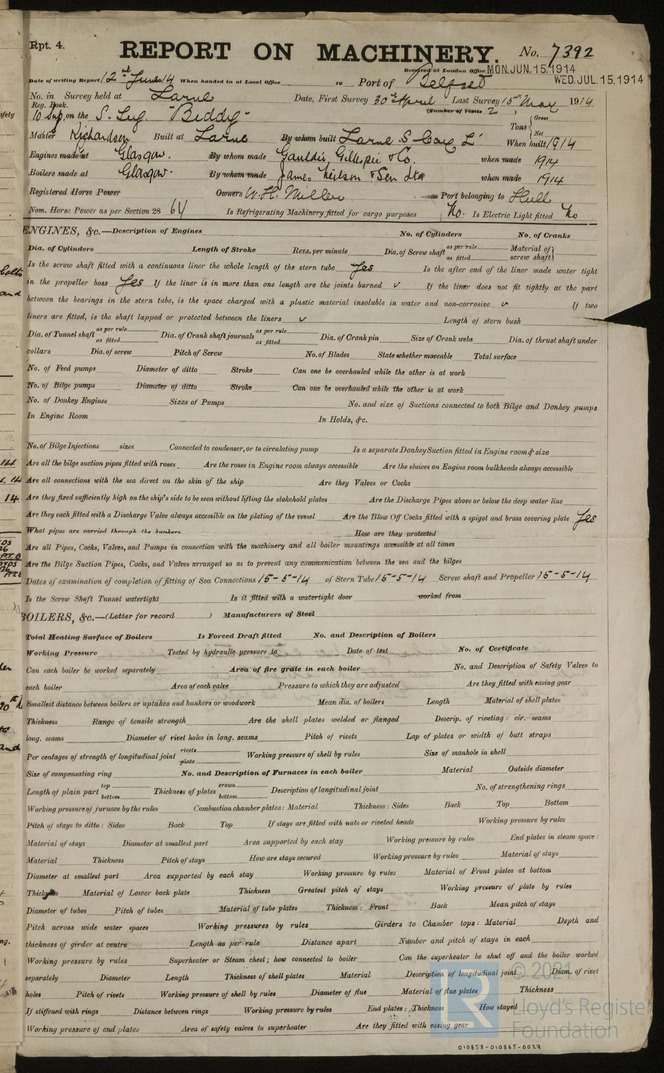 Rpt. 4.
REPORT ON MACHINERY. No. 7392
Received at London Office MON. JUN. 15. 1914
WED. JUL. 15. 1914
Date of writing Report 12th June 14 When handed in at Local Office to Port of Belfast
No. in Survey held at Larne Date, First Survey 30th April Last Survey 15th May 1914
Reg. Book. (Number of Visits 2
on the S. Lug "Biddy" Tons { Gross Net
Master Richardson Built at Larne By whom built Larne S When built 1914
Engines made at Glasgow. By whom made Gauldie, Gillespie & Co. when made 1914
Boilers made at Glasgow. By whom made James Neilson & Son Ltd when made 1914
Registered Horse Power Owners W. H. Miller Port belonging to Hull
Nom. Horse Power as per Section 28 64 Is Refrigerating Machinery fitted for cargo purposes No. Is Electric Light fitted No
ENGINES, &c.—Description of Engines No. of Cylinders No. of Cranks
Dia. of Cylinders Length of Stroke Revs. per minute Dia. of Screw shaft as per rule as fitted Material of screw shaft
Is the screw shaft fitted with a continuous liner the whole length of the stern tube Yes Is the after end of the liner made water tight
in the propeller boss Yes If the liner is in more than one length are the joints burned ✓ If the liner does not fit tightly at the part
between the bearings in the stern tube, is the space charged with a plastic material insoluble in water and non-corrosive ✓ If two
liners are fitted, is the shaft lapped or protected between the liners ✓ Length of stern bush
Dia. of Tunnel shaft as per rule as fitted Dia. of Crank shaft journals as per rule as fitted Dia. of Crank pin Size of Crank webs Dia. of thrust shaft under
collars Dia. of screw Pitch of Screw No. of Blades State whether moveable Total surface
No. of Feed pumps Diameter of ditto Stroke Can one be overhauled while the other is at work
No. of Bilge pumps Diameter of ditto Stroke Can one be overhauled while the other is at work
No. of Donkey Engines Sizes of Pumps No. and size of Suctions connected to both Bilge and Donkey pumps
In Engine Room In Holds, &c.
No. of Bilge Injections sizes Connected to condenser, or to circulating pump Is a separate Donkey Suction fitted in Engine room & size
Are all the bilge suction pipes fitted with roses Are the roses in Engine room always accessible Are the sluices on Engine room bulkheads always accessible
Are all connections with the sea direct on the skin of the ship Are they Valves or Cocks
Are they fixed sufficiently high on the ship's side to be seen without lifting the stokehold plates Are the Discharge Pipes above or below the deep water line
Are they each fitted with a Discharge Valve always accessible on the plating of the vessel Are the Blow Off Cocks fitted with a spigot and brass covering plate Yes
What pipes are carried through the bunkers How are they protected
Are all Pipes, Cocks, Valves, and Pumps in connection with the machinery and all boiler mountings accessible at all times
Are the Bilge Suction Pipes, Cocks, and Valves arranged so as to prevent any communication between the sea and the bilges
Dates of examination of completion of fitting of Sea Connections 15-5-14 of Stern Tube 15-5-14 Screw shaft and Propeller 15-5-14
Is the Screw Shaft Tunnel watertight Is it fitted with a watertight door worked from
BOILERS, &c.—(Letter for record ) Manufacturers of Steel
Total Heating Surface of Boilers Is Forced Draft fitted No. and Description of Boilers
Working Pressure Tested by hydraulic pressure to Date of test No. of Certificate
Can each boiler be worked separately Area of fire grate in each boiler No. and Description of Safety Valves to
each boiler Area of each valve Pressure to which they are adjusted Are they fitted with easing gear
Smallest distance between boilers or uptakes and bunkers or woodwork Mean dia. of boilers Length Material of shell plates
Thickness Range of tensile strength Are the shell plates welded or flanged Descrip. of riveting: cir. seams
long. seams Diameter of rivet holes in long. seams Pitch of rivets Lap of plates or width of butt straps
Per centages of strength of longitudinal joint rivets plate Working pressure of shell by rules Size of manhole in shell
Size of compensating ring No. and Description of Furnaces in each boiler Material Outside diameter
Length of plain part top bottom Thickness of plates crown bottom Description of longitudinal joint No. of strengthening rings
Working pressure of furnace by the rules Combustion chamber plates: Material Thickness: Sides Back Top Bottom
Pitch of stays to ditto: Sides Back Top If stays are fitted with nuts or riveted heads Working pressure by rules
Material of stays Diameter at smallest part Area supported by each stay Working pressure by rules End plates in steam space:
Material Thickness Pitch of stays How are stays secured Working pressure by rules Material of stays
Diameter at smallest part Area supported by each stay Working pressure by rules Material of Front plates at bottom
Thickness Material of Lower back plate Thickness Greatest pitch of stays Working pressure of plate by rules
Diameter of tubes Pitch of tubes Material of tube plates Thickness: Front Back Mean pitch of stays
Pitch across wide water spaces Working pressures by rules Girders to Chamber tops: Material Depth and
thickness of girder at centre Length as per rule Distance apart Number and pitch of stays in each
Working pressure by rules Superheater or Steam chest; how connected to boiler Can the superheater be shut off and the boiler worked
separately Diameter Length Thickness of shell plates Material Description of longitudinal joint Diam. of rivet
holes Pitch of rivets Working pressure of shell by rules Diameter of flue Material of flue plates Thickness
If stiffened with rings Distance between rings Working pressure by rules End plates: Thickness How stayed
Working pressure of end plates Area of safety valves to superheater Are they fitted with easing gear
© 2021
Lloyd's Register
Foundation
010858-010865-0029